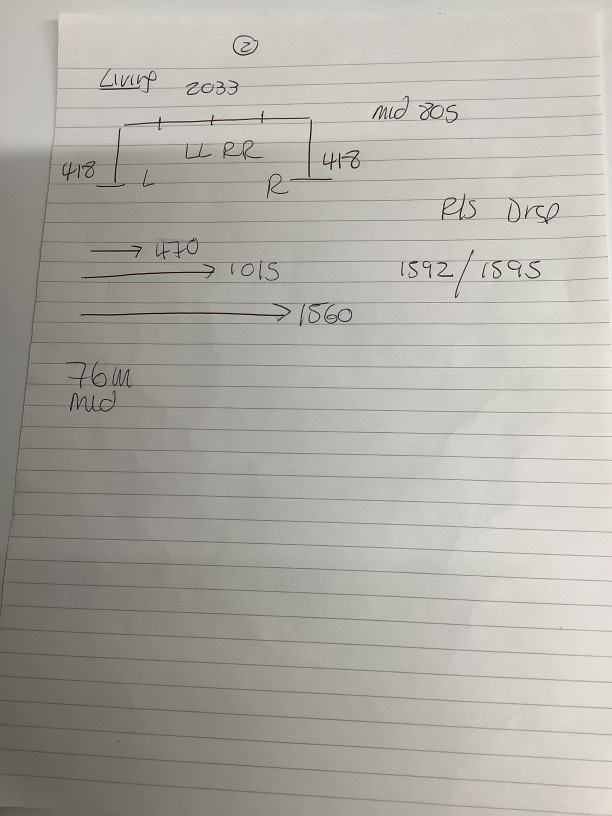 2
Living 2033
mid 805
418 L LL RR R 418
R/S Drop
470
1015 1592/1595
1560
76m
mid